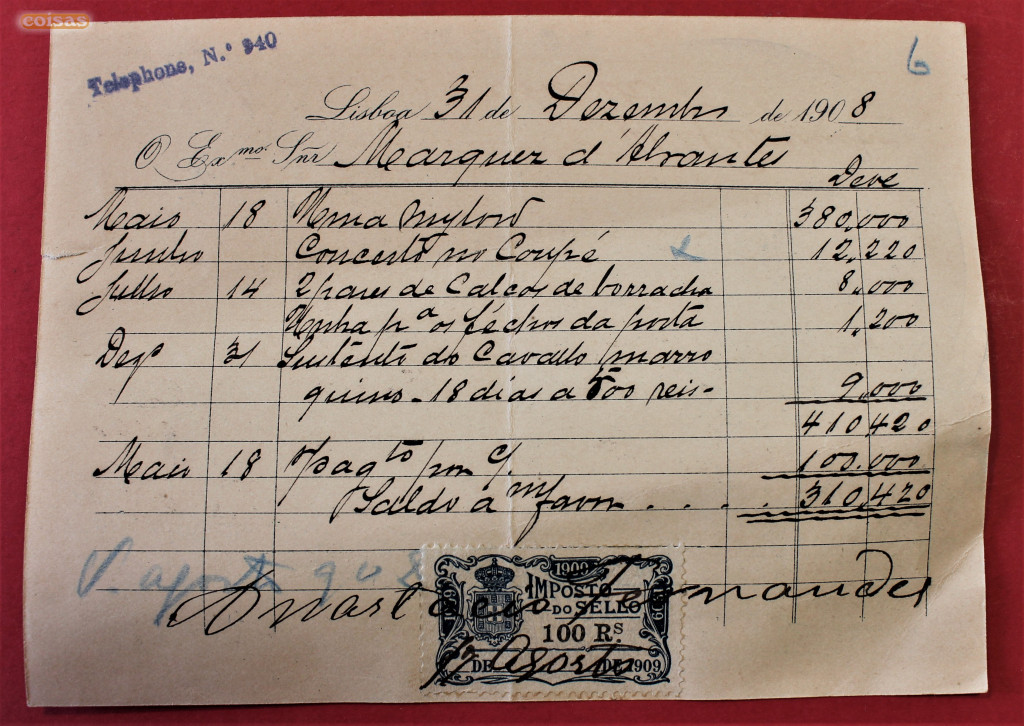 coisas
Telephone, N.º 940
6
Lisboa 31 de Dezembro de 1908
O Exmo. Snr Marquez d'Abrantes
Deve
Maio 18 Uma Mylord 380,000
Junho Concerto no Coupé 12,220
Julho 14 2 pares de Calços de borracha 8,000
pª os féchos da porta 1,200
Dezº 31 Sustento do Cavallo marro
quino - 18 dias a 500 reis - 9,000
410,420
Maio 18 s/ pagto por c/ 100.000
Saldo a m/ favor . . . . 310,420
agosto 908
Anastacio Fernandes
1900
IMPOSTO
DO SELLO
100 RS.
DE Agosto DE 1909